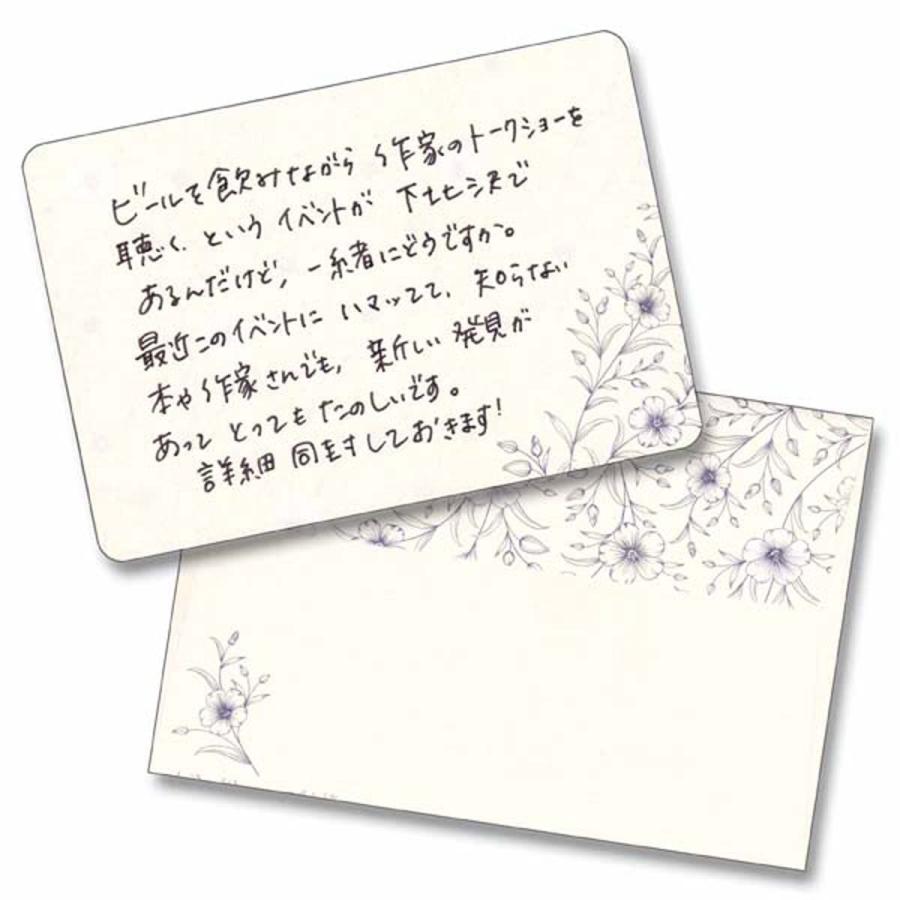 ビールを飲みながら作家のトークショーを
聴く、というイベントが下北沢で
あるんだけど、一緒にどうですか。
最近このイベントにハマってて、知らない
本や作家さんでも、新しい発見が
あってとってもたのしいです。
詳細同封しておきます!